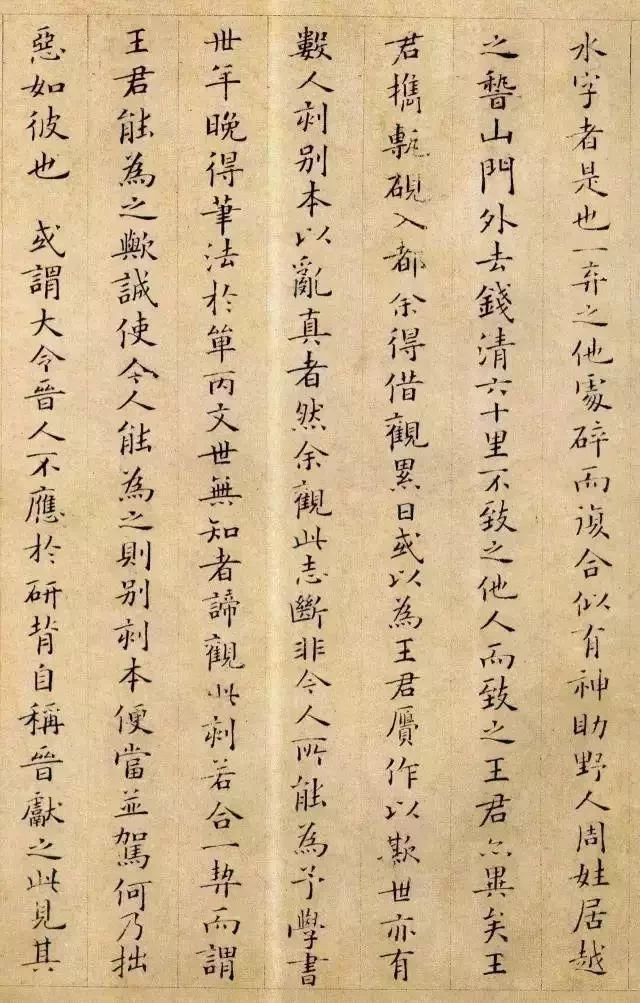 水字者是也一弃之他處碎而復合似有神助野人周姓居越
之稽山門外去錢清六十里不致之他人而致之王君亦異矣王
君携甎硯入都余得借觀累日或以為王君贗作以欺世亦有
數人刻别本以亂真者然余觀此志斷非今人所能為予學書
卅年晚得筆法於單丙文世無知者諦觀此刻若合一契而謂
王君能為之歟誠使今人能為之則别刻本便當並駕何乃拙
惡如彼也 或謂大令晉人不應於研背自稱晉獻之此見其